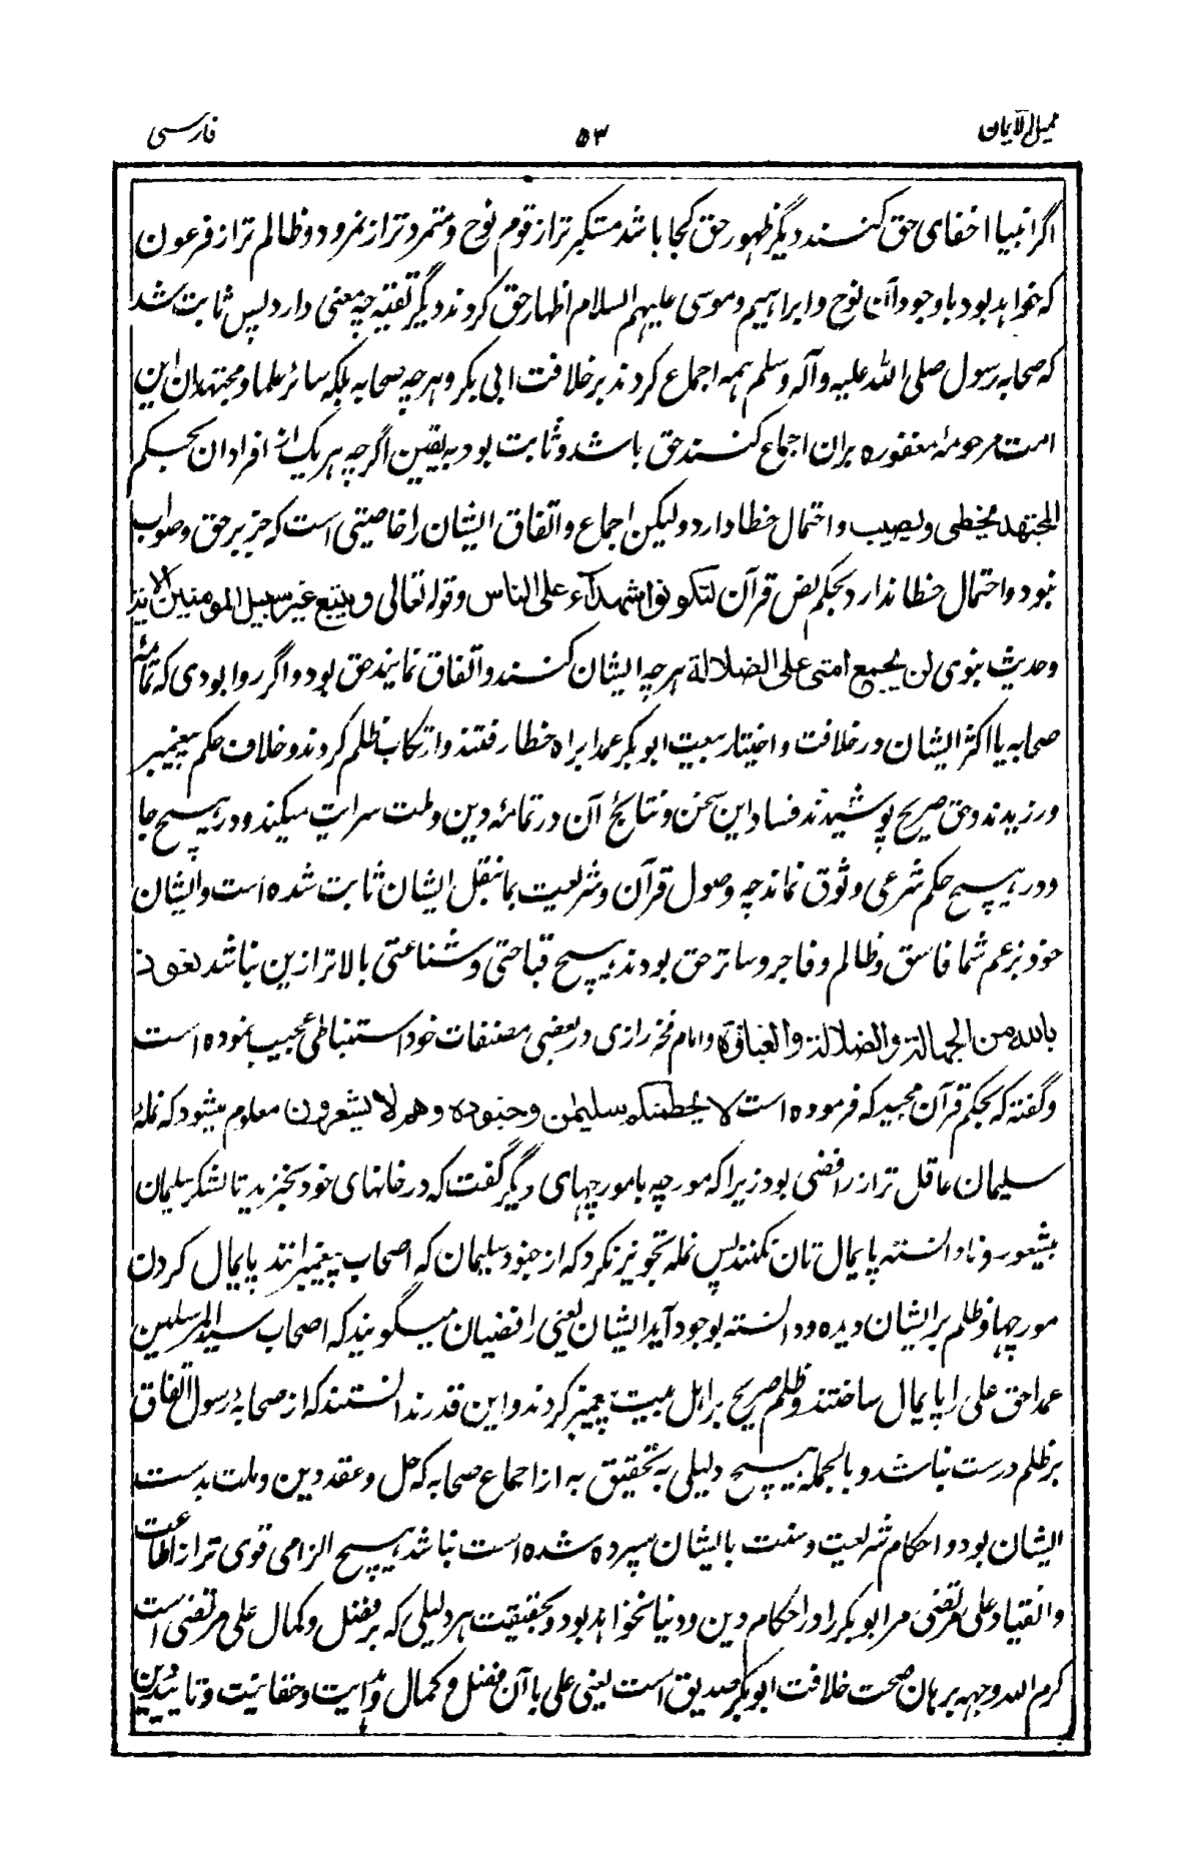 تکمیل الایمان ۵۳ فارسی
اگر انبیا اخفای حق کنند دیگر ظهور حق کجا باشد متکبر تر از قوم نوح و متمرد تر از نمرود و ظالم تر از فرعون
که خواهد بود با وجود آن نوح و ابراهیم و موسی علیهم السلام اظهار حق کردند دیگر تقیه چه معنی دارد پس ثابت شد
که صحابه رسول صلی الله علیه وآله وسلم همه اجماع کردند بر خلافت ابی بکر و هر چه صحابه بلکه سائر علما و مجتهدان این
امت مرحومۀ مغفوره بران اجماع کنند حق باشد و ثابت بود به یقین اگرچه هر یک از افراد ان بحکم
المجتهد یخطی و یصیب و احتمال خطا دارد ولیکن اجماع و اتفاق ایشان را خاصیتی است که جز بر حق و صواب
نبود و احتمال خطا ندارد بحکم نص قرآن لتکونوا شهدآء علی الناس و قوله تعالی ویتبع غیر سبیل المومنین الایة
و حدیث نبوی لن یجمع امتی علی الضلالة هر چه ایشان کنند و اتفاق نمایند حق بود و اگر روا بودی که تمامۀ
صحابه یا اکثر ایشان در خلافت و اختیار بیعت ابوبکر عمدا براه خطا رفتند و ارتکاب ظلم کردند و خلاف حکم پیغمبر
ورزیدند و حق صریح پوشیدند فساد این سخن و نتائج آن در تمامۀ دین و ملت سرایت میکند و در هیچ جا
و در هیچ حکم شرعی وثوق نماند چه وصول قرآن و شریعت بما بنقل ایشان ثابت شده است و ایشان
خود بزعم شما فاسق و ظالم و فاجر و ساتر حق بودند هیچ قباحتی و شناعتی بالاتر ازین نباشد نعوذ
بالله من الجهالة والضلالة والغباوة و امام فخر رازی در بعضی مصنفات خود استنباطی عجیب نموده است
و گفته که بحکم قرآن مجید که فرموده است لا یحطمنکم سلیمن وجنوده وهم لا یشعرون معلوم میشود که نملۀ
سلیمان عاقل تر از رافضی بود زیرا که مورچه با مورچهای دیگر گفت که در خانهای خود بخزید تا لشکر سلیمان
بیشعور و نادانسته پایمال تان نکنند پس نمله تجویز نکرد که از جنود سلیمان که اصحاب پیغمبرانند پایمال کردن
مورچها و ظلم بر ایشان دیده و دانسته بوجود آید ایشان یعنی رافضیان میگویند که اصحاب سید المرسلین
عمدا حق علی را پایمال ساختند و ظلم صریح بر اهل بیت پیغمبر کردند و این قدر ندانستند که از صحابۀ رسول اتفاق
بر ظلم درست نباشد و بالجمله هیچ دلیلی به تحقیق به از اجماع صحابه که حل و عقد دین و ملت بدست
ایشان بود و احکام شریعت و سنت بایشان سپرده شده است نباشد هیچ الزامی قوی تر از اطاعت
و انقیاد علی مرتضی مر ابوبکر را در احکام دین و دنیا نخواهد بود و بحقیقت هر دلیلی که بر فضل و کمال علی مرتضی است
کرم الله وجهه برهان صحت خلافت ابوبکر صدیق است یعنی علی با آن فضل و کمال و ولایت و حقانیت و تائید دین